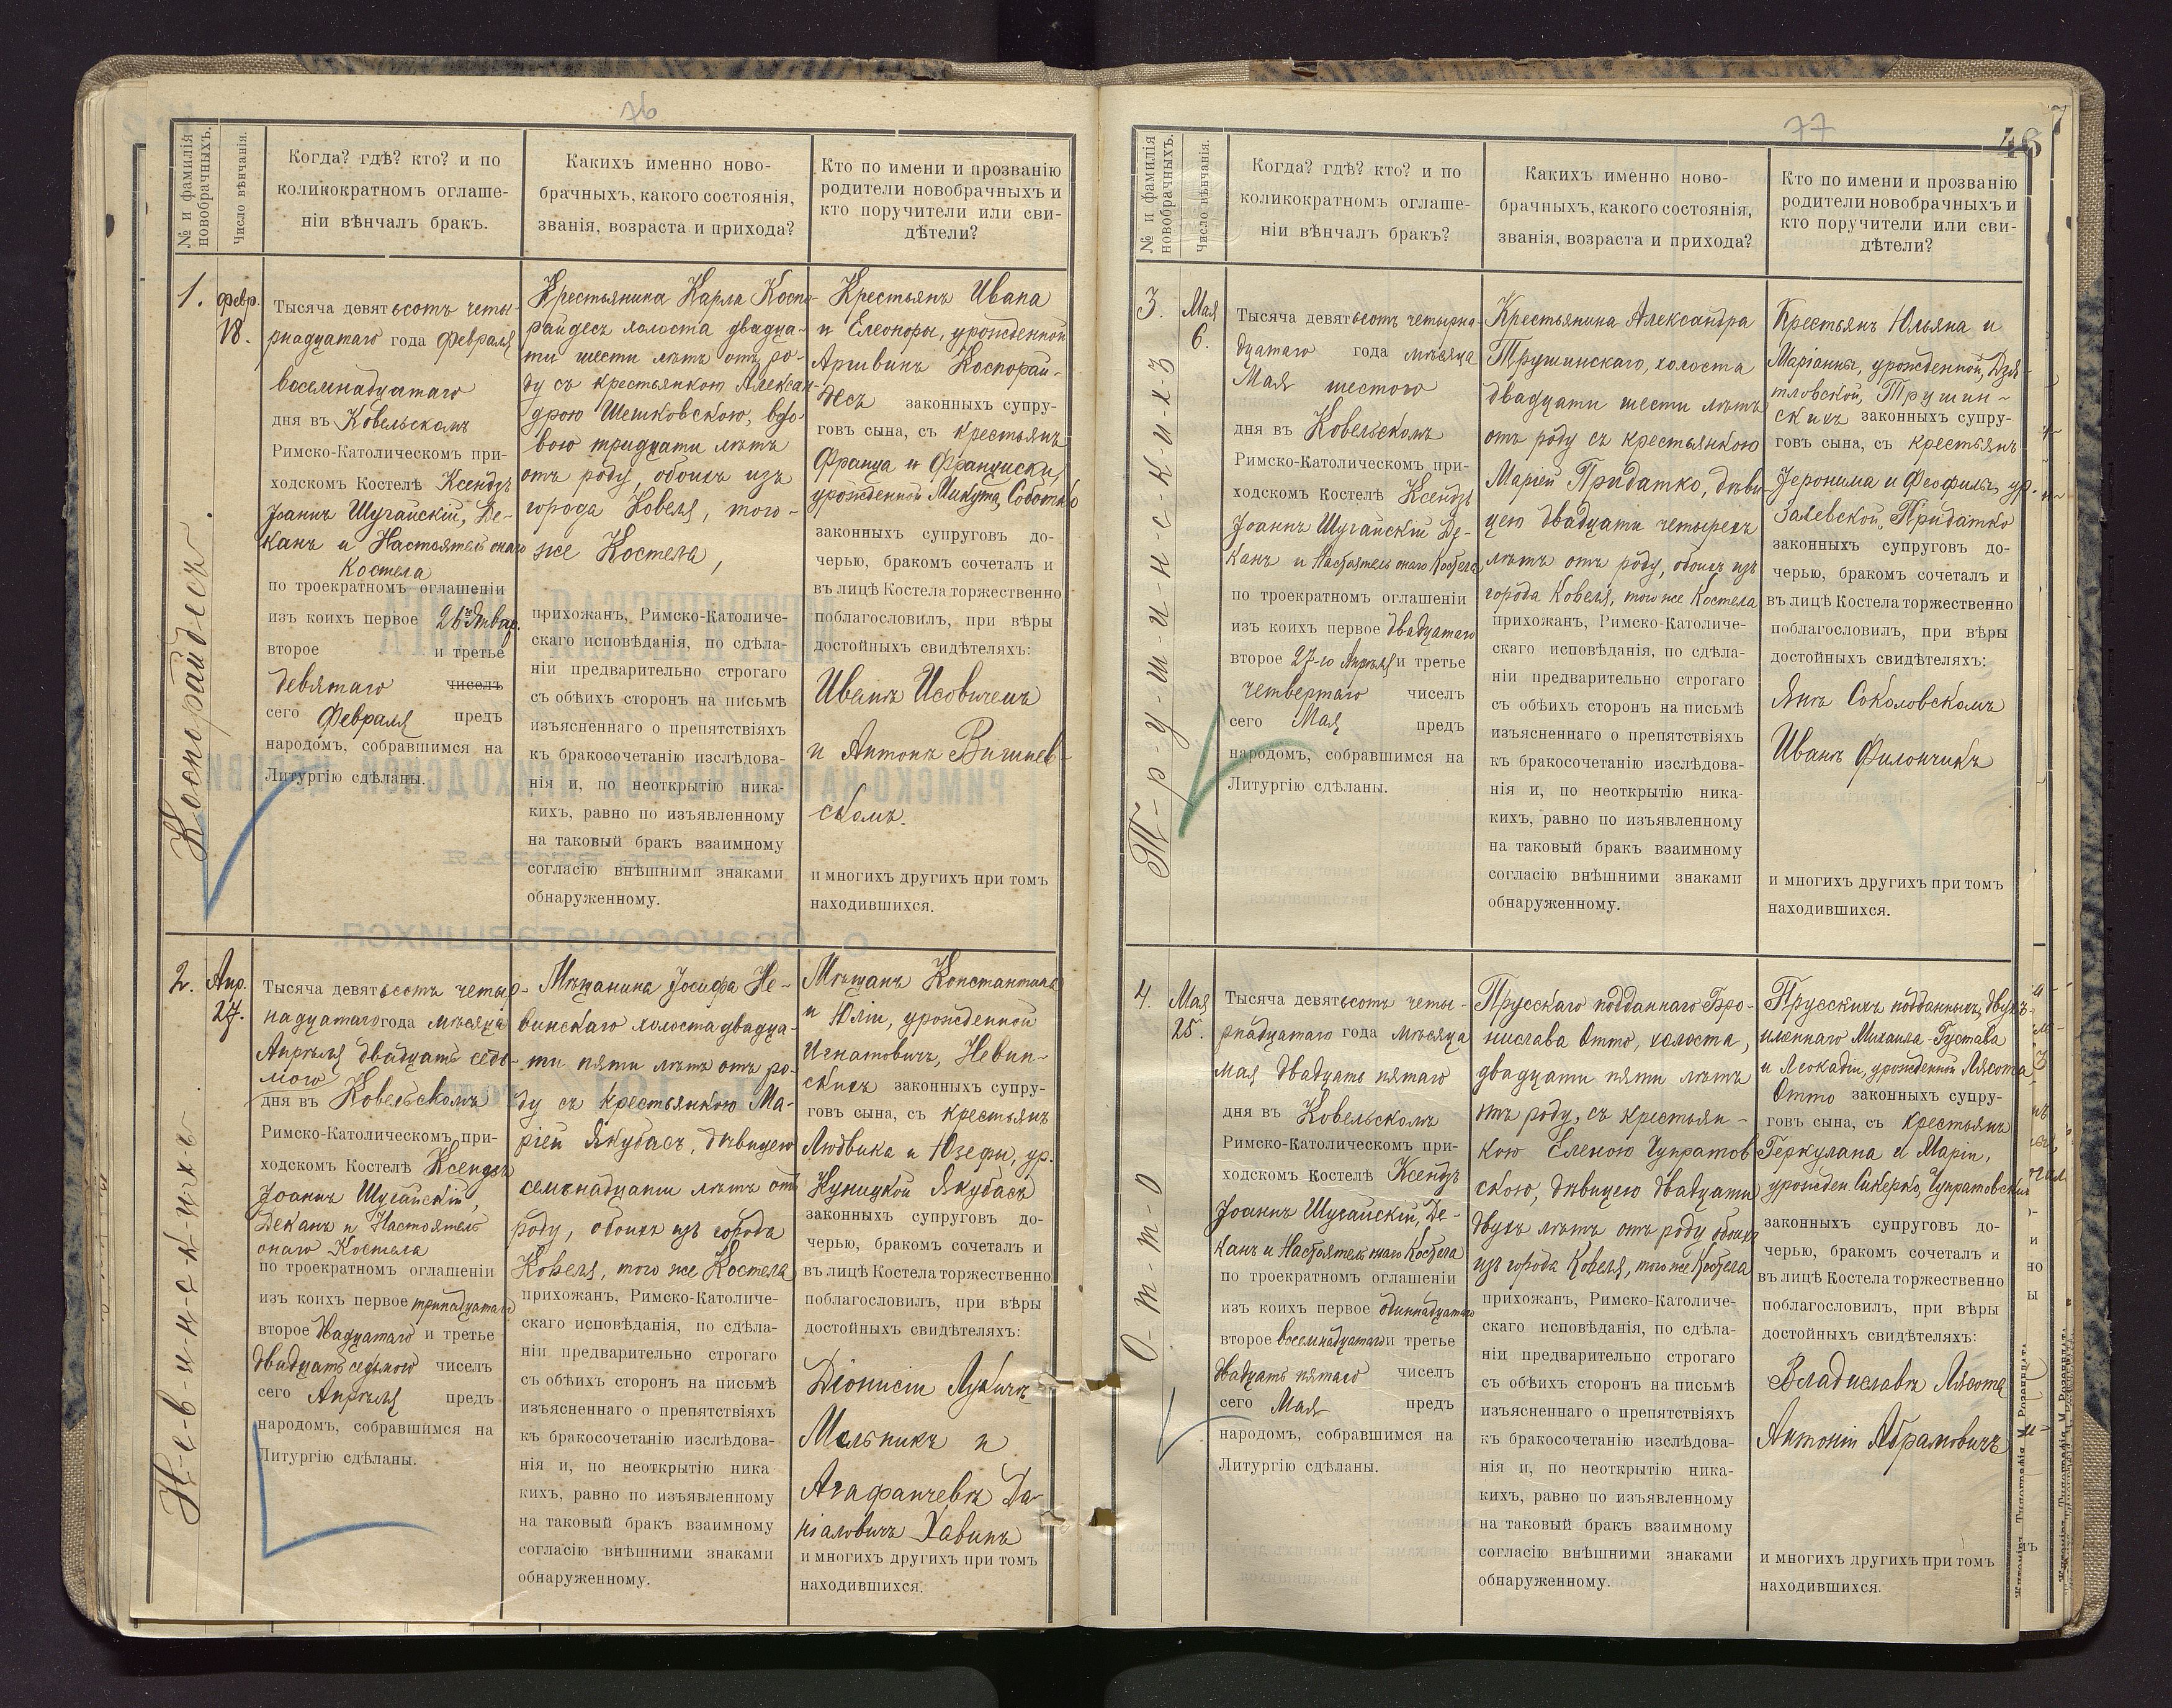 76
№ и фамилія новобрачныхъ.
Число вѣнчанія.
Когда? гдѣ? кто? и по
коликократномъ оглаше-
ніи вѣнчалъ бракъ.
Какихъ именно ново-
брачныхъ, какого состоянія,
званія, возраста и прихода?
Кто по имени и прозванію
родители новобрачныхъ и
кто поручители или сви-
дѣтели?
1.
Февр.
18.
Коспорайдесъ.
Тысяча девятьсотъ четы-
рнадцатаго года Февраля
восемнадцатаго
дня въ Ковельскомъ
Римско-Католическомъ при-
ходскомъ Костелѣ Ксендзъ
Іоаннъ Шугайскій, Де-
канъ и Настоятель онаго
Костела
по троекратномъ оглашеніи
изъ коихъ первое 26го Январ.
второе и третье
девятаго чиселъ
сего Февраля предъ
народомъ, собравшимся на
Литургію сдѣланы.
Крестьянина Карла Коспо-
райдесъ холоста двадца-
ти шести лѣтъ отъ ро-
ду съ крестьянкою Алексан-
дрою Шешковскою, вдо-
вою тридцати лѣтъ
отъ роду, обоихъ изъ
города Ковеля, того-
же Костела,
прихожанъ, Римско-Католиче-
скаго исповѣданія, по сдѣла-
ніи предварительно строгаго
съ обѣихъ сторонъ на письмѣ
изъясненнаго о препятствіяхъ
къ бракосочетанію изслѣдова-
нія и, по неоткрытію ника-
кихъ, равно по изъявленному
на таковый бракъ взаимному
согласію внѣшними знаками
обнаруженному.
Крестьянъ Ивана
и Елеоноры, урожденной
Аршвинъ Коспорай-
десъ законныхъ супру-
говъ сына, съ крестьянъ
Франца и Франциски,
урожденной Микута, Соботко
законныхъ супруговъ до-
черью, бракомъ сочеталъ и
въ лицѣ Костела торжественно
поблагословилъ, при вѣры
достойныхъ свидѣтеляхъ:
Иванъ Исовичемъ
и Антонъ Вишнев-
скомъ.
и многихъ другихъ при томъ
находившихся.
2.
Апр.
27.
Н-е-в-и-н-с-к-и-х-ъ.
Тысяча девятьсотъ четыр-
надцатаго года мѣсяца
Апрѣля двадцать седь-
мого
дня въ Ковельскомъ
Римско-Католическомъ при-
ходскомъ Костелѣ Ксендзъ
Іоаннъ Шугайскій,
Деканъ и Настоятель
онаго Костела
по троекратномъ оглашеніи
изъ коихъ первое тринадцатаго
второе двадцатаго и третье
двадцать седьмого чиселъ
сего Апрѣля предъ
народомъ, собравшимся на
Литургію сдѣланы.
Мѣщанина Іосифа Не-
винскаго холоста двадца-
ти пяти лѣтъ отъ ро-
ду съ крестьянкою Ма-
ріей Якубасъ, дѣвицею
семьнадцати лѣтъ отъ
роду, обоихъ изъ города
Ковеля, того же Костела
прихожанъ, Римско-Католиче-
скаго исповѣданія, по сдѣла-
ніи предварительно строгаго
съ обѣихъ сторонъ на письмѣ
изъясненнаго о препятствіяхъ
къ бракосочетанію изслѣдова-
нія и, по неоткрытію ника
кихъ, равно по изъявленному
на таковый бракъ взаимному
согласію внѣшними знаками
обнаруженному.
Мѣщанъ Константина
и Юліи, урожденной
Игнатовичъ, Невин-
скихъ законныхъ супру-
говъ сына, съ крестьянъ
Людвика и Юзефы, ур.
Куницкой Якубасъ
законныхъ супруговъ до-
черью, бракомъ сочеталъ и
въ лицѣ Костела торжественно
поблагословилъ, при вѣры
достойныхъ свидѣтеляхъ:
Діонисіи Лукичъ
Мельникъ и
Агафангевъ Да-
ніаловичъ Хавинъ
и многихъ другихъ при томъ
находившихся.
77
46
№ и фамилія новобрачныхъ.
Число вѣнчанія.
Когда? гдѣ? кто? и по
коликократномъ оглаше-
ніи вѣнчалъ бракъ?
Какихъ именно ново-
брачныхъ, какого состоянія,
званія, возраста и прихода?
Кто по имени и прозванію
родители новобрачныхъ и
кто поручители или сви-
дѣтели?
3.
Мая
6.
Т-р-у-ш-и-н-с-к-и-х-ъ
Тысяча девятьсотъ четырна-
дцатаго года мѣсяца
Мая шестого
дня въ Ковельскомъ
Римско-Католическомъ при-
ходскомъ Костелѣ Ксендзъ
Іоаннъ Шугайскій Де-
канъ и Настоятель онаго Костела
по троекратномъ оглашеніи
изъ коихъ первое двадцатаго
второе 27-го Апрѣля и третье
четвертаго чиселъ
сего Мая предъ
народомъ, собравшимся на
Литургію сдѣланы.
Крестьянина Александра
Трушинскаго, холоста
двадцати шести лѣтъ
отъ роду съ крестьянкою
Маріей Придатко, дѣви
цею двадцати четырехъ
лѣтъ отъ роду, обоихъ изъ
города Ковеля, того же Костела
прихожанъ, Римско-Католиче-
скаго исповѣданія, по сдѣла-
ніи предварительно строгаго
съ обѣихъ сторонъ на письмѣ
изъясненнаго о препятствіяхъ
къ бракосочетанію изслѣдова-
нія и, по неоткрытію ника-
кихъ, равно по изъявленному
на таковый бракъ взаимному
согласію внѣшними знаками
обнаруженному.
Крестьянъ Юльяна и
Маріанны, урожденной, Дзя-
тловской, Трушин-
скихъ законныхъ супру-
говъ сына, съ крестьянъ
Іеронима и Феофилы, ур.
Залевской, Придатко
законныхъ супруговъ до-
черью, бракомъ сочеталъ и
въ лицѣ Костела торжественно
поблагословилъ, при вѣры
достойныхъ свидѣтеляхъ:
Янъ Соколовскомъ
Иванъ Филончикъ
и многихъ другихъ при томъ
находившихся.
4.
Мая
25.
О-т-т-о
Тысяча девятьсотъ четы-
рнадцатаго года мѣсяца
мая двадцать пятаго
дня въ Ковельскомъ
Римско-Католическомъ при-
ходскомъ Костелѣ Ксендзъ
Іоаннъ Шугайскій, Де-
канъ и Настоятель онаго Костела
по троекратномъ оглашеніи
изъ коихъ первое одиннадцатаго
второе восемнадцатаго и третье
двадцать пятаго чиселъ
сего Мая предъ
народомъ, собравшимся на
Литургію сдѣланы.
Прусскаго подданнаго Бро-
нислава Отто, холоста,
двадцати пяти лѣтъ
отъ роду, съ крестьян-
кою Еленою Чупратов
скою, дѣвицею двадцати
двухъ лѣтъ отъ роду обоихъ
изъ города Ковеля, того же Костела
прихожанъ, Римско-Католиче-
скаго исповѣданія, по сдѣла-
ніи предварительно строгаго
съ обѣихъ сторонъ на письмѣ
изъясненнаго о препятствіяхъ
къ бракосочетанію изслѣдова-
нія и, по неоткрытію ника-
кихъ, равно по изъявленному
на таковый бракъ взаимному
согласію внѣшними знаками
обнаруженному.
Прусскихъ подданныхъ, двухъ-
именнаго Михаила-Густава
и Леокадіи, урожденной Лясота
Отто законныхъ супру-
говъ сына, съ крестьянъ
Геркулана и Маріи,
урожден. Сикерко, Чупратовскихъ
законныхъ супруговъ до-
черью, бракомъ сочеталъ и
въ лицѣ Костела торжественно
поблагословилъ, при вѣры
достойныхъ свидѣтеляхъ:
Владиславъ Лясота
Антоній Абрамовичъ
и многихъ другихъ при томъ
находившихся.